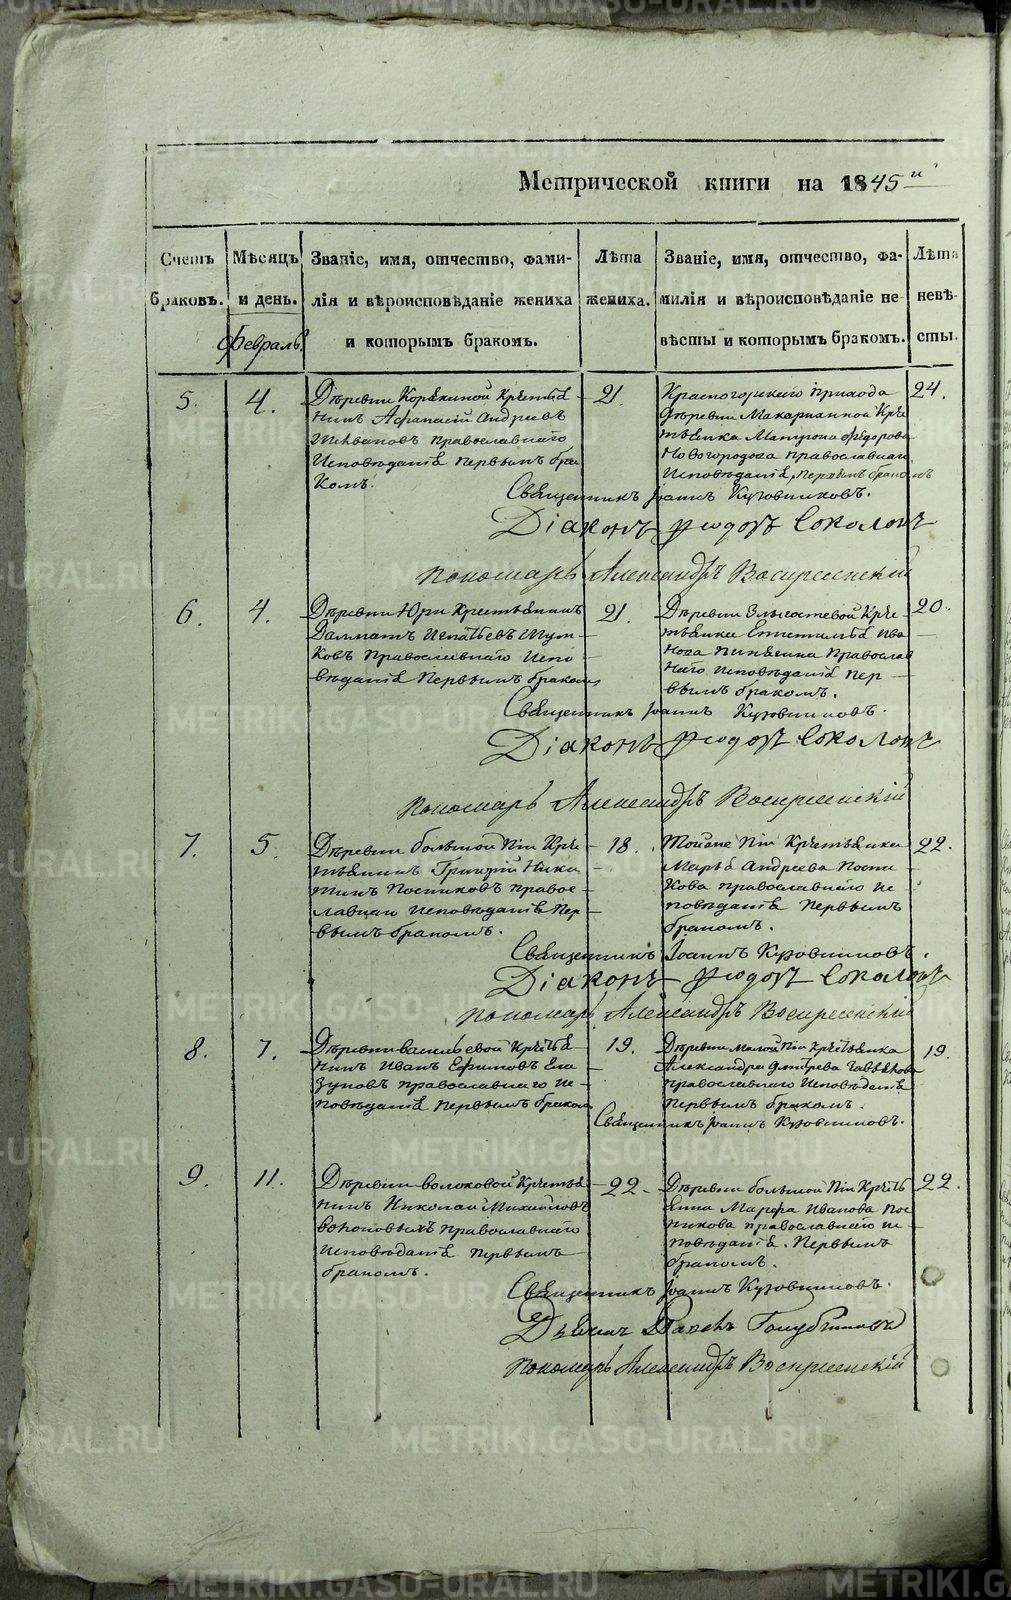 Метрической книги на 1845й
Счетъ браковъ.
Мѣсяцъ и день.
Февраль.
Званіе, имя, отчество, фами-
лія и вѣроисповѣданіе жениха
и которымъ бракомъ.
Лѣта жениха.
Званіе, имя, отчество, фа-
милія и вѣроисповѣданіе не-
вѣсты и которымъ бракомъ.
Лѣта невѣ-
сты.
5.
4.
Деревни Корѣкиной Крестья
нинъ Афанасій Андреевъ
православнаго
Исповѣданія первымъ бра
комъ.
21
Красногорскаго прихода
Деревни Макарихиной Кре
стьянка Матрона Федорова
Новогородова православнаго
Исповѣданія, первымъ бракомъ
24.
Священникъ Іоаннъ Кузовниковъ.
Діаконъ Ѳеодоръ Соколовъ
Пономарь Александръ Воскресенскій
6.
4.
Деревни Юри Крестьянинъ
Далматъ Игнатьевъ
православнаго Испо
вѣданія Первымъ бракомъ
21.
Деревни Злыгостевой Кре
стьянка Епистимья Ива
нова Пинягина Православ
наго Исповѣданія Пер
вымъ бракомъ.
20.
Священникъ Іоаннъ Кузовниковъ.
Діаконъ Ѳеодоръ Соколовъ
Пономарь Александръ Воскресенскій
7.
5.
Деревни большой Піи Кре
стьянинъ Григорій Ники
тинъ Постниковъ право
славнаго Исповѣданія Пер
вымъ бракомъ.
18.
Тойже Піи Крестьянка
Марья Андреева Постни
кова православнаго Ис
повѣданія Первымъ
бракомъ.
22.
Священникъ Іоаннъ Кузовниковъ.
Діаконъ Ѳеодоръ Соколовъ
Пономарь Александръ Воскресенскій
8.
7.
Деревни Васильевой Крестья
нинъ Иванъ Ефимовъ Ела
зуновъ православнаго Ис
повѣданія первымъ бракомъ
19.
Деревни малой Піи Крестьянка
Александра Дмитрева
православнаго Исповѣданія
первымъ бракомъ.
19.
Священникъ Іоаннъ Кузовниковъ.
9.
11.
Деревни Волоковой Крестья
нинъ Николай Михайловъ
православнаго
Исповѣданія первымъ
бракомъ.
22.
Деревни большой Піи Кресть
янка Марфа Иванова Пос
никова православнаго Ис
повѣданія. Первымъ
бракомъ.
22.
Священникъ Іоаннъ Кузовниковъ.
Дьячекъ
Пономарь Александръ Воскресенскій
METRIKI.GASO-URAL.RU